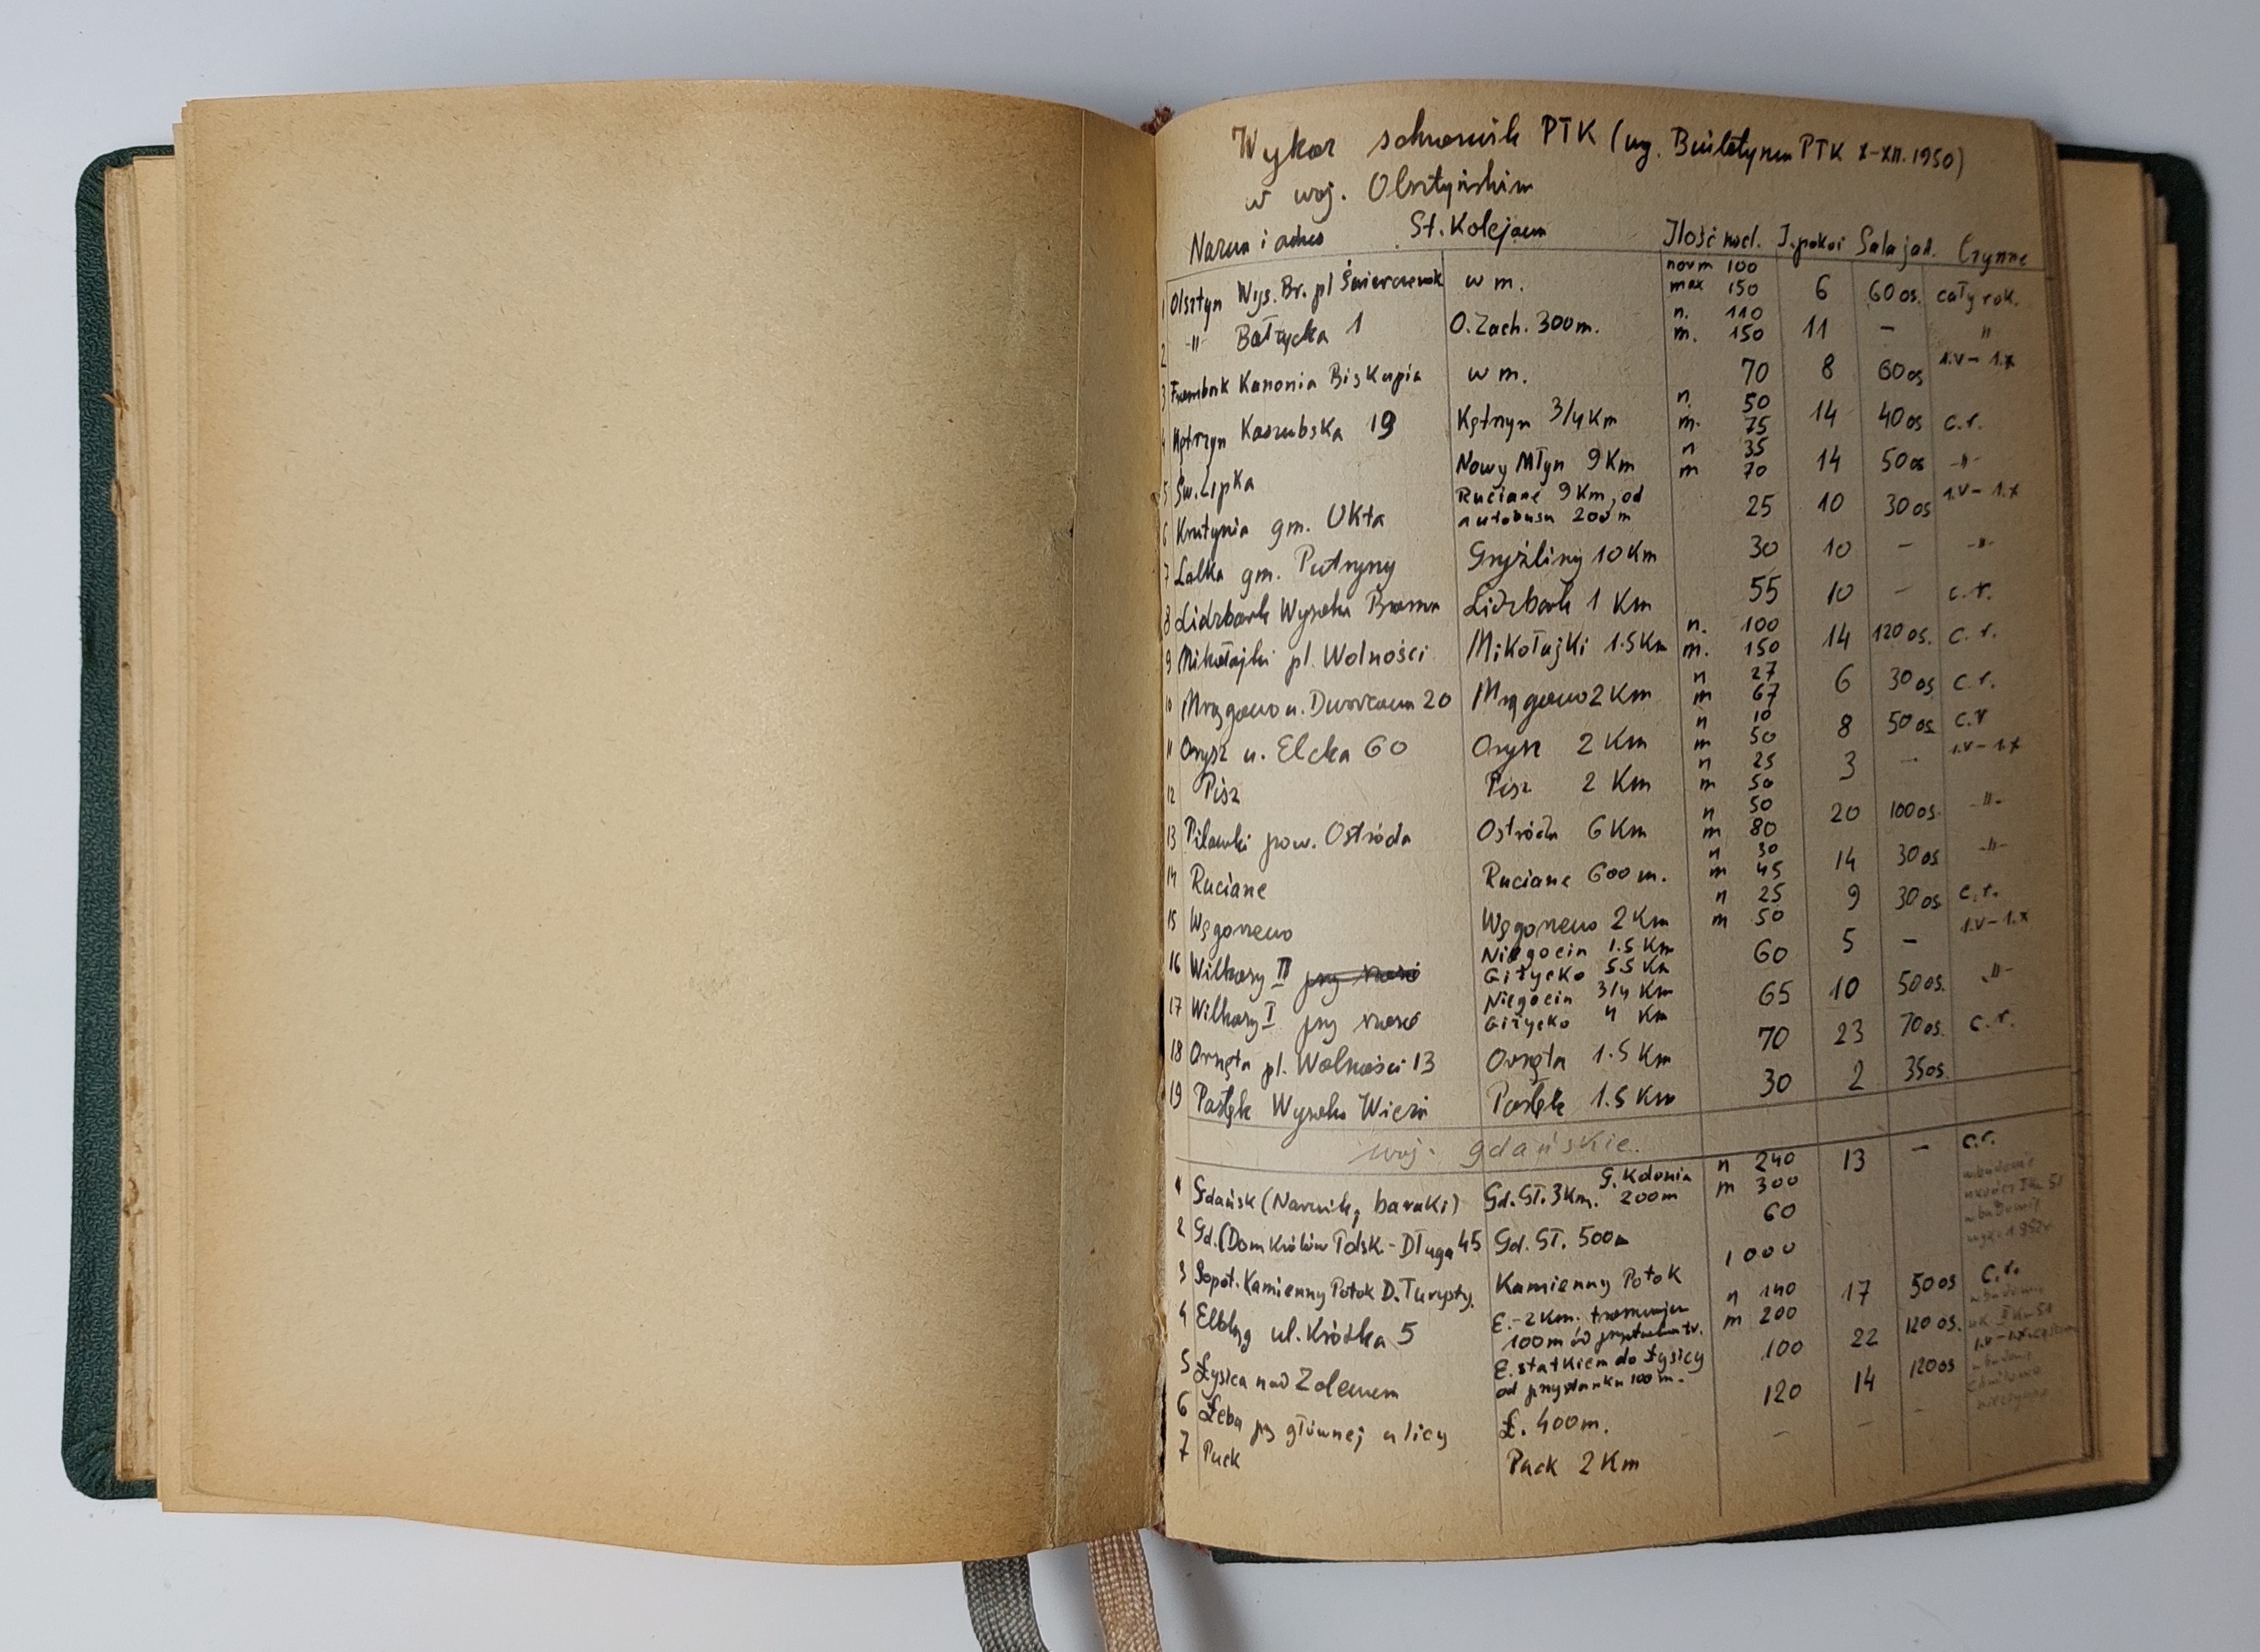 Wykaz schronisk PTK (wg. Biuletynu PTK X-XII. 1950)
w woj. Olsztyńskim
Nazwa i adres St. Kolejowa Ilość nocl. I. pokoi Sala jad. Czynne
1 Olsztyn Wys. Br. pl Świerczewsk w m. norm 100 max 150 6 60 os. cały rok.
2 -"- Bałtycka 1 O. Zach. 300 m. n. 110 m. 150 11 - "
3 Frombork Kanonia Biskupia w m. 70 8 60 os 1.V - 1.X
4 Kętrzyn Kaszubska 19 Kętrzyn 3/4 Km n. 50 m. 75 14 40 os c.r.
5 Św. Lipka Nowy Młyn 9 Km n 35 m 70 14 50 os -"-
6 Krutynia gm. Ukta Ruciane 9 Km, od autobusu 200 m 25 10 30 os 1.V - 1.X
7 Łalka gm. Putryny Gryźliny 10 Km 30 10 - -"-
8 Lidzbark Wysoka Brama Lidzbark 1 Km 55 10 - c.r.
9 Mikołajki pl. Wolności Mikołajki 1.5 Km n. 100 m. 150 14 120 os. c.r.
10 Mrągowo u. Dworcowa 20 Mrągowo 2 Km n 27 m 67 6 30 os c.r.
11 Orzysz u. Ełcka 60 Orzysz 2 Km n 10 m 50 8 50 os c.r
12 Pisz Pisz 2 Km n 25 m 50 3 - 1.V - 1.X
13 Piławki pow. Ostróda Ostróda 6 Km n 50 m 80 20 100 os. -"-
14 Ruciane Ruciane 600 m. n 30 m 45 14 30 os -"-
15 Węgorzewo Węgorzewo 2 Km n 25 m 50 9 30 os c.r.
16 Wilkasy II Niegocin 1.5 Km Giżycko 5.5 Km 60 5 - 1.V - 1.X
17 Wilkasy I przy szosie Niegocin 3/4 Km Giżycko 4 Km 65 10 50 os. -"-
18 Orneta pl. Wolności 13 Orneta 1.5 Km 70 23 70 os. c.r.
19 Pasłęk Wysoka Wieża Pasłęk 1.5 Km 30 2 35 os.
woj. gdańskie.
1 Gdańsk (Narwik, baraki) Gd. Gł. 3 Km. G. Kolonia 200 m n 240 m 300 13 - c.r.
2 Gd. (Dom Królów Polsk. - Długa 45 Gd. Gł. 500 m 60
3 Sopot. Kamienny Potok D. Turysty. Kamienny Potok 1000
4 Elbląg ul. Krótka 5 E. - 2 Km. tramwajem 100 m od n 140 m 200 17 50 os c.r.
5 Łysica nad Zalewem E. statkiem do Łysicy od przystanku 100 m. 100 22 120 os.
6 Łeba przy głównej ulicy Ł. 400 m. 120 14 120 os
7 Puck Puck 2 Km - - -